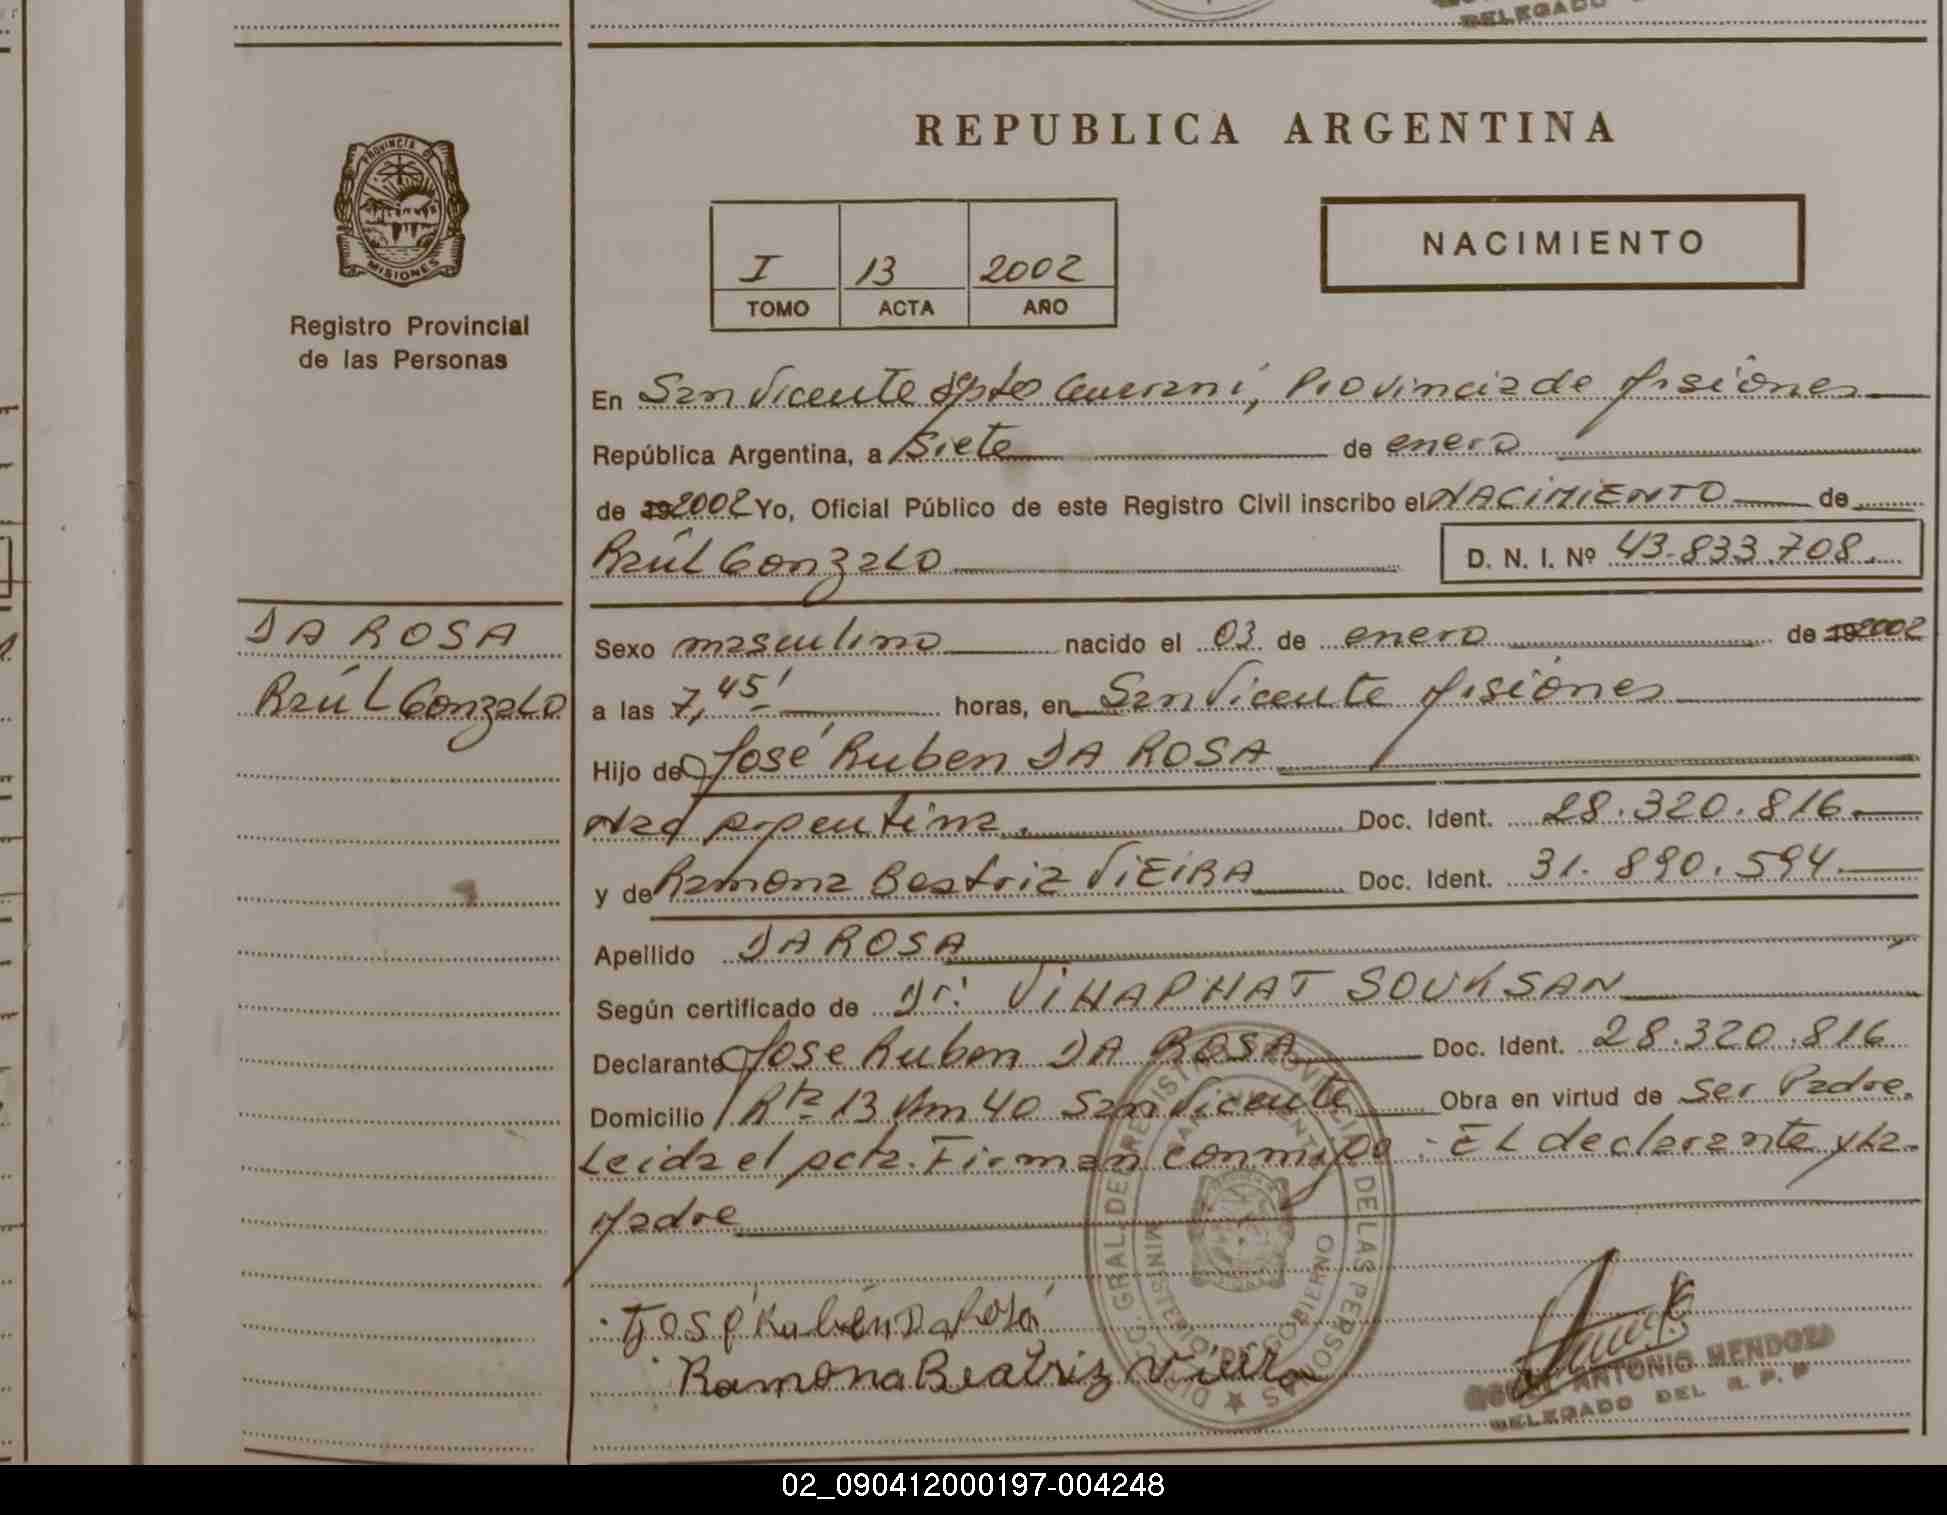 DELEGADO
REPUBLICA ARGENTINA
PROVINCIA DE
MISIONES
Registro Provincial
de las Personas
I 13 2002
TOMO ACTA AÑO
NACIMIENTO
En San Vicente Dpto Guarani, Provincia de Misiones
República Argentina, a Siete de enero
de 19 2002 Yo, Oficial Público de este Registro Civil inscribo el NACIMIENTO de
Raúl Gonzalo D. N. I. Nº 43.833.708.
DA ROSA
Raúl Gonzalo
Sexo masculino nacido el 03 de enero de 19 2002
a las 7,45' horas, en San Vicente Misiones
Hijo de José Ruben DA ROSA
Nac Argentina. Doc. Ident. 28.320.816.
y de Ramona Beatriz ViEiRA Doc. Ident. 31.890.594.
Apellido DA ROSA
Según certificado de Dr. ViHAPHAT SOUKSAN
Declarante Jose Ruben DA ROSA Doc. Ident. 28.320.816
Domicilio Rta 13 Km 40 San Vicente Obra en virtud de Ser Padre.
Leida el acta. Firman conmigo: El declarante y la
Madre
DIREC. GRAL. DEL REGISTRO PROVINCIAL DE LAS PERSONAS
MINISTERIO DE GOBIERNO
José Rubén Da Rosa
Ramona Beatriz Vieira
ANTONIO MENDOZA
DELEGADO DEL R. P. P
02_090412000197-004248